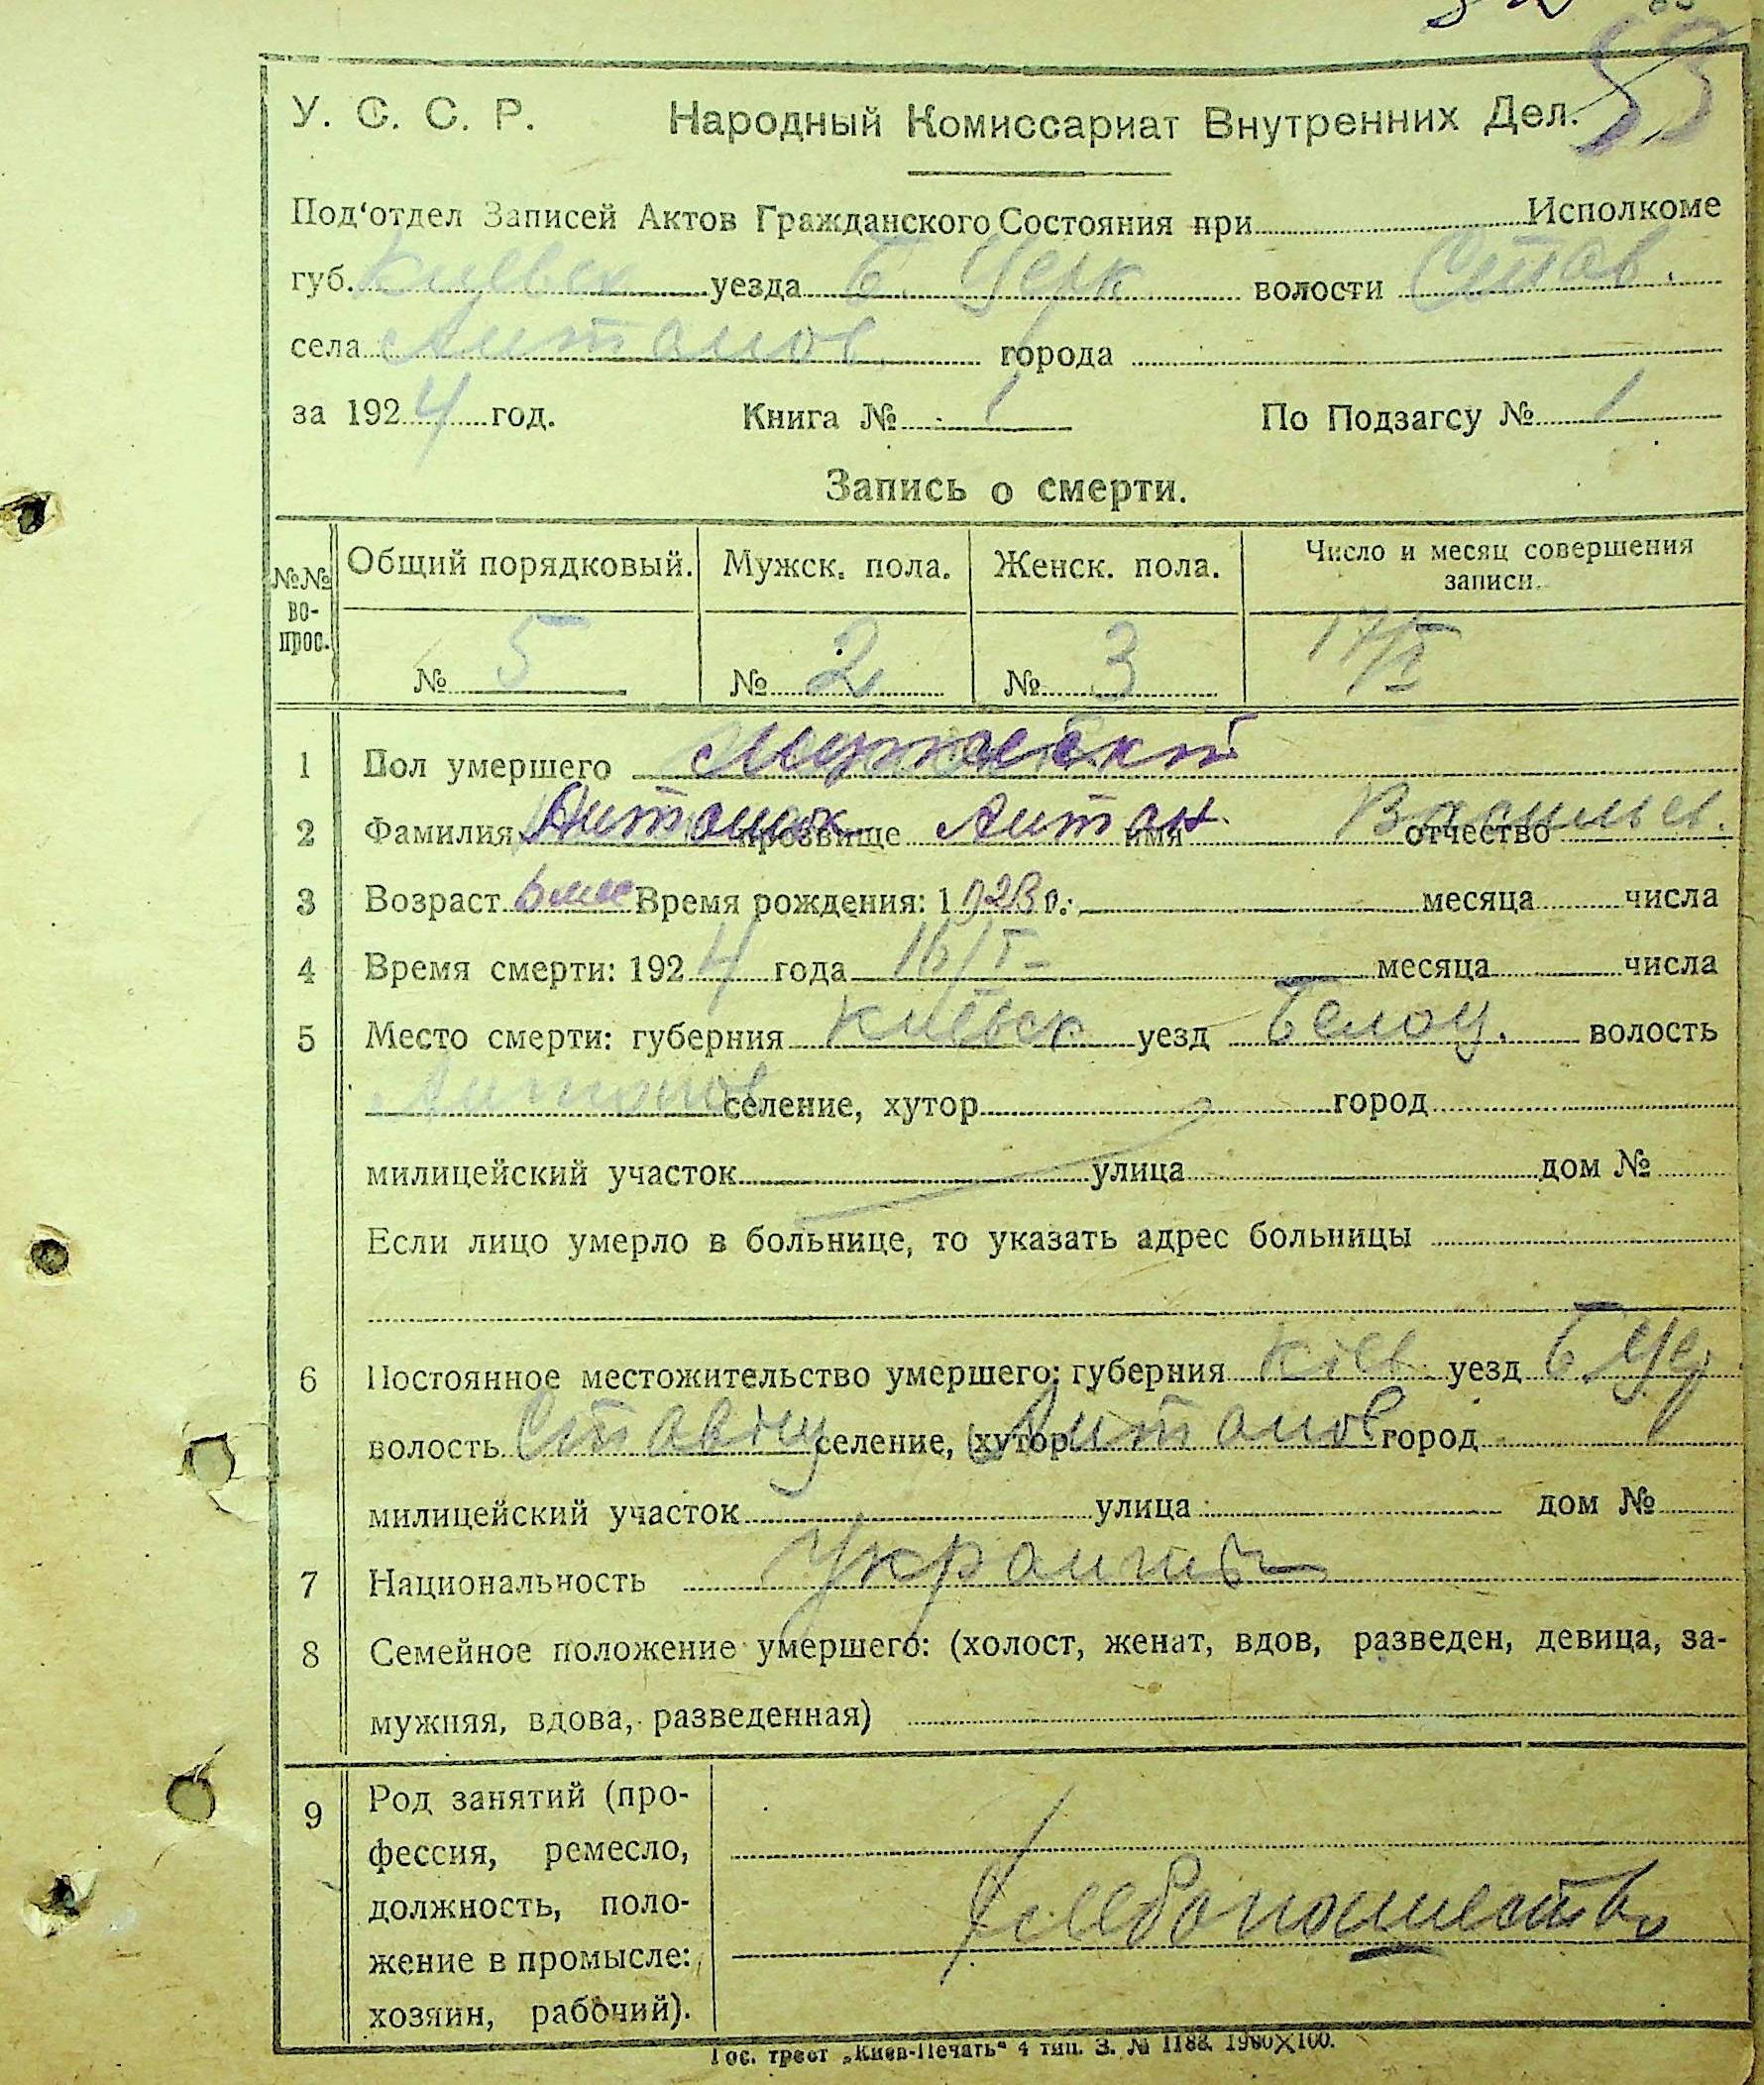 53
У. С. С. Р. Народный Комиссариат Внутренних Дел.
Под‘отдел Записей Актов Гражданского Состояния при Исполкоме
губ. Киевск уезда Б. Церк волости Став.
села Антонов города
за 1924 год. Книга № 1 По Подзагсу № 1
Запись о смерти.
№№ во- прос. Общий порядковый. Мужск. пола. Женск. пола. Число и месяц совершения записи.
№ 5 № 2 № 3 17/I
1 Пол умершего Мужеский
2 Фамилия Антонюк прозвище Антон имя Васильев. отчество
3 Возраст 6 мес Время рождения: 1923 г. месяца числа
4 Время смерти: 1924 года 16/I – месяца числа
5 Место смерти: губерния Киевск уезд Белоц. волость
Антонов селение, хутор город
милицейский участок улица дом №
Если лицо умерло в больнице, то указать адрес больницы
6 Постоянное местожительство умершего: губерния Киев. уезд Б Цер
волость Ставищ селение, хутор Антонов город
милицейский участок улица дом №
7 Национальность
8 Семейное положение умершего: (холост, женат, вдов, разведен, девица, за-
мужняя, вдова, разведенная)
9 Род занятий (про-
фессия, ремесло,
должность, поло-
жение в промысле:
хозяин, рабочий).
Хлебопашество
Гос. трест „Киев-Печать“ 4 тип. З. № 1183. 1980×100.